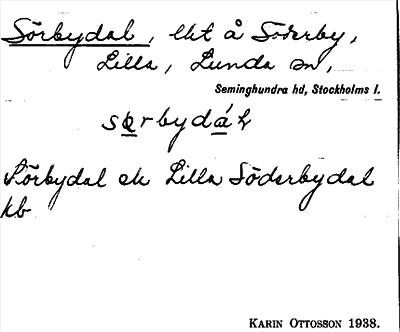 Sörbydal, lht å Söderby,
Lilla, Lunda sn,
Seminghundra hd, Stockholms l.
Sörbydal ek Lilla Söderbydal
kb
KARIN OTTOSSON 1938.